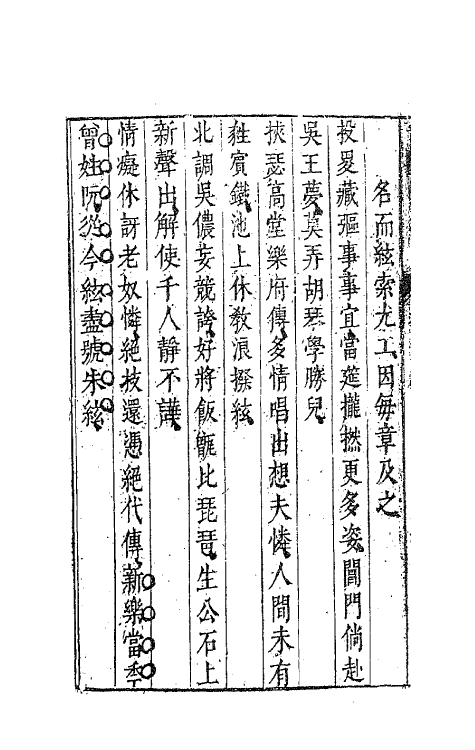 名而絃索尤工因每章及之
投㚟藏彄事事宜當筵攏撚更多姿閶門倘赴
吳王夢莫弄胡琴學勝兒
挾瑟高堂樂府傳多情唱出想夫憐人間未有
甤賓鐵池上休教浪撥絃
北調吳儂妄競誇好將飯甑比琵琶生公石上
新聲出解使千人靜不譁
情癡休訝老奴憐絕技還憑絕代傳新樂當年
曾姓阮從今絃盡號朱絃